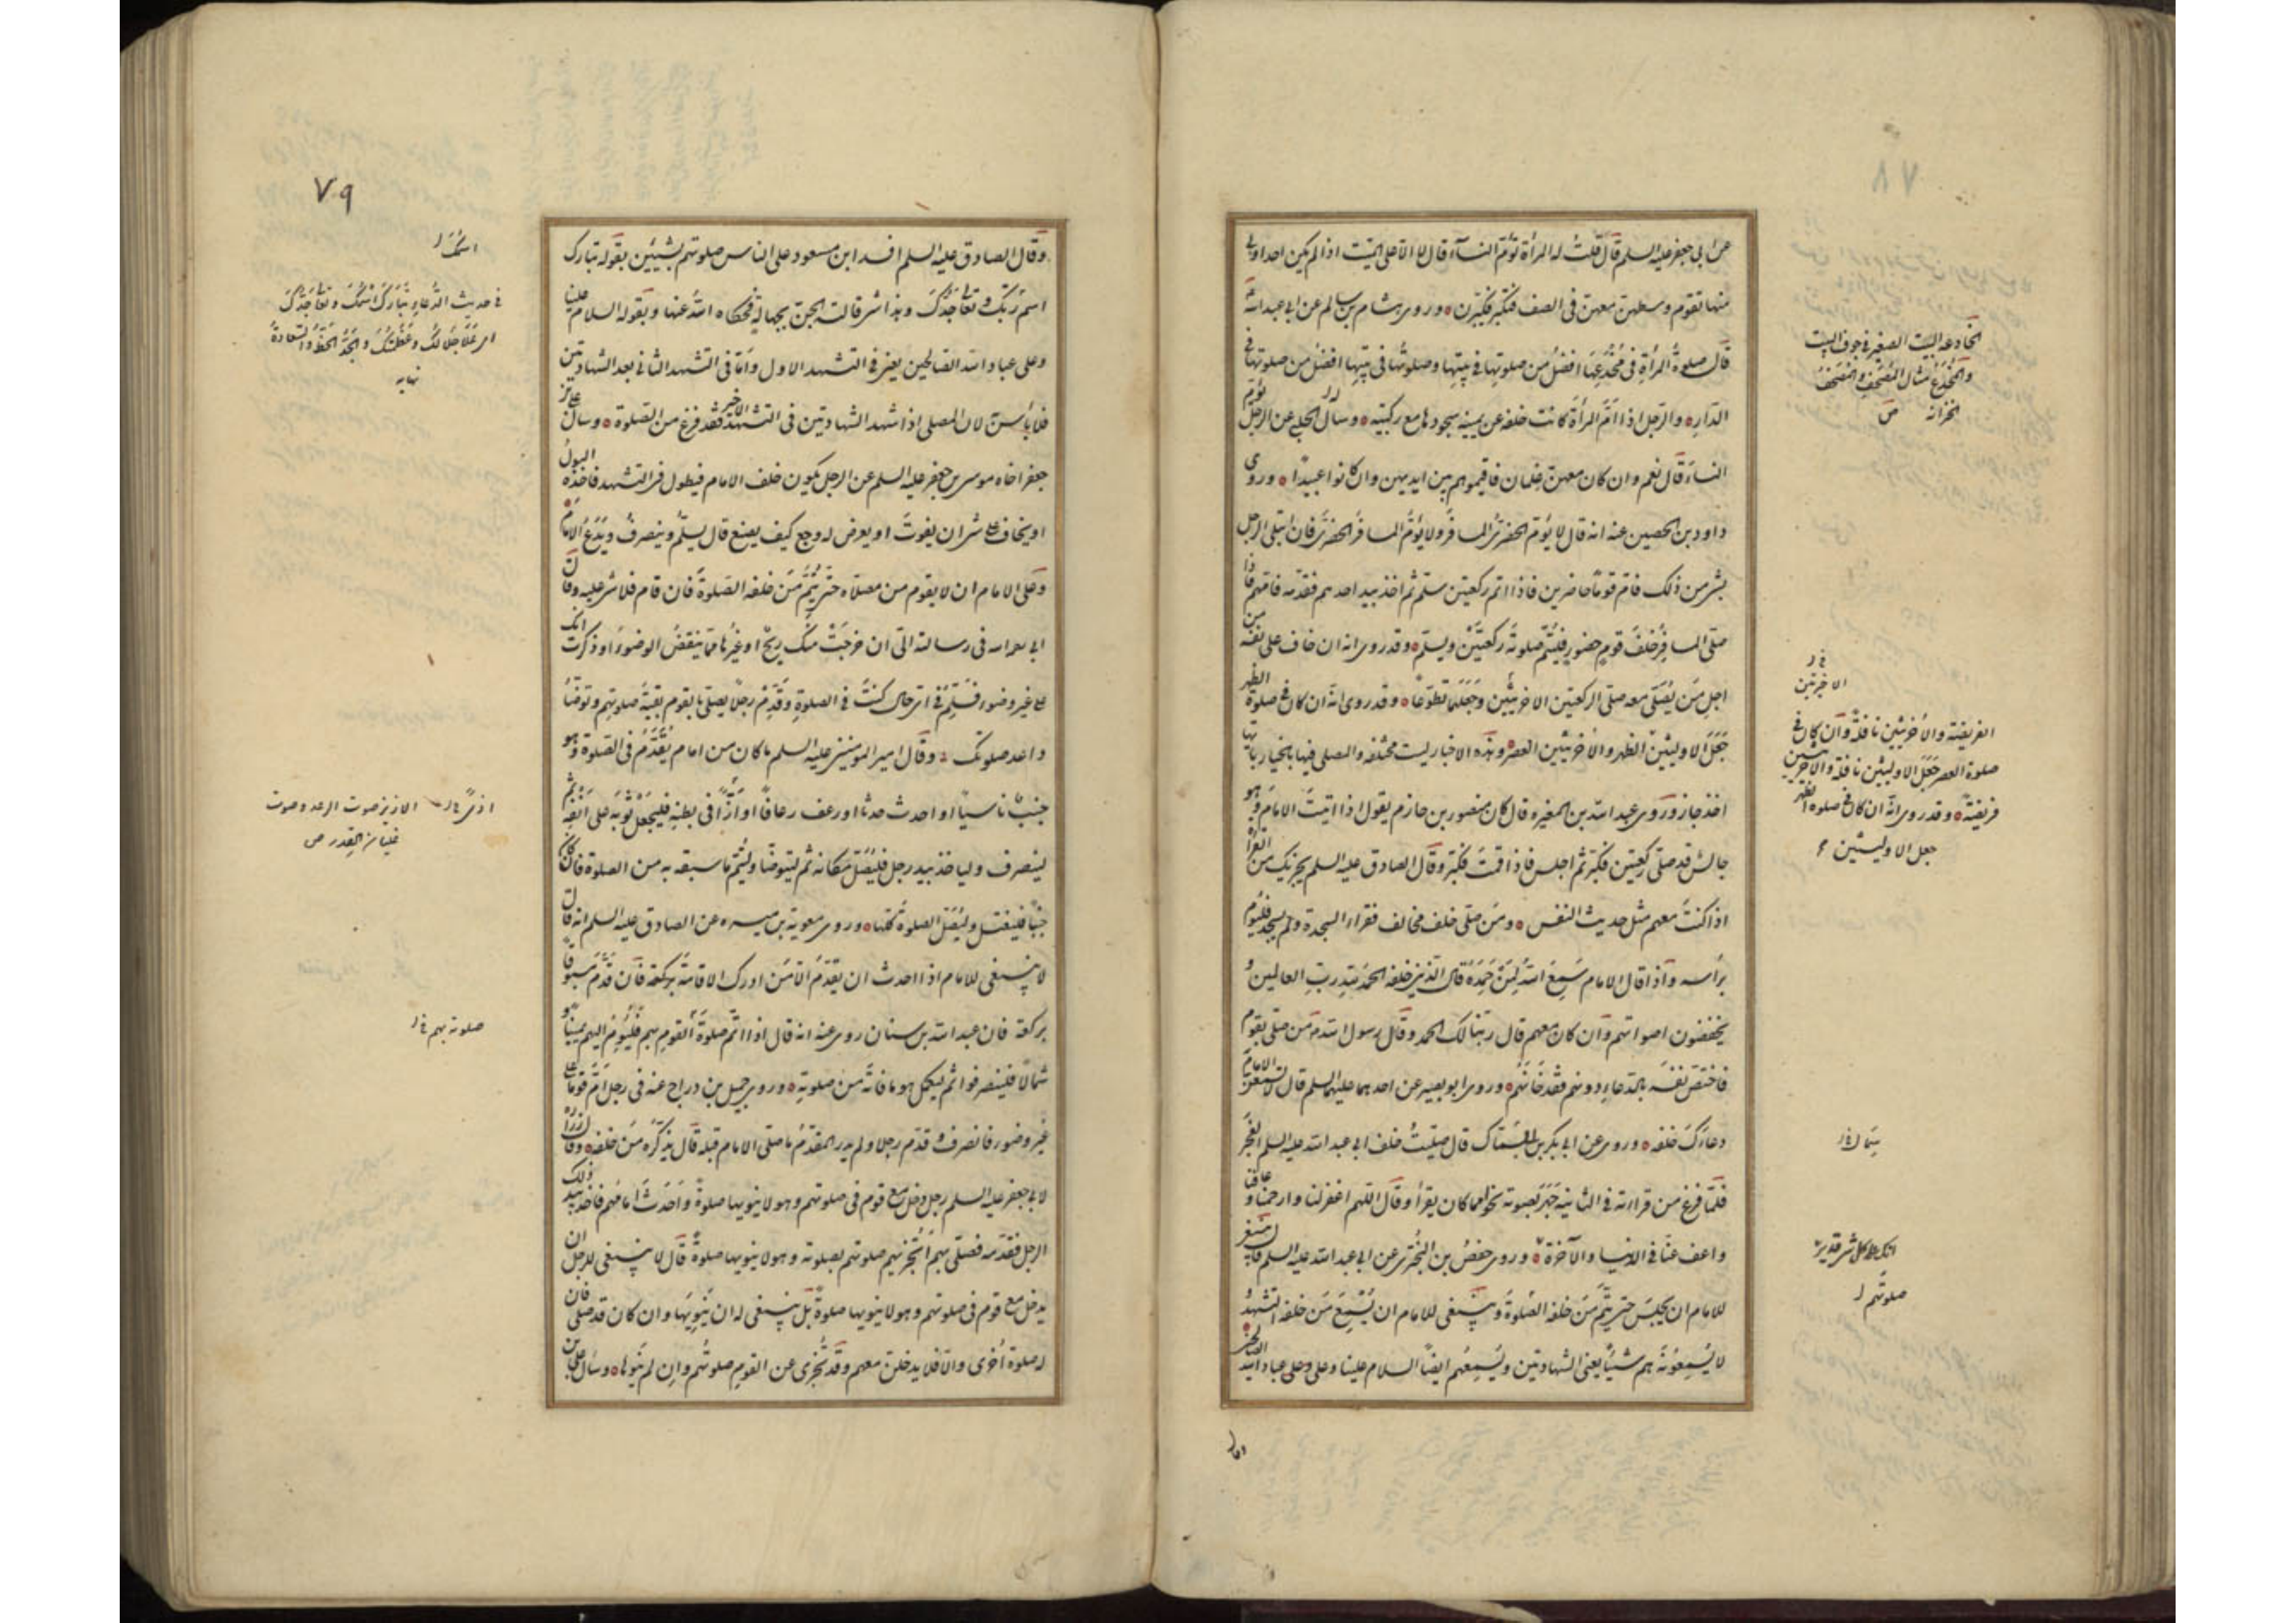 ٧٨
عن ابي جعفر عليه السلم قال قلت له المرأة تؤم النسآء قال لا الا على الميت اذا لم يكن احد اولى
منها تقوم وسطهن معهن في الصف فتكبر فيكبرن ٥ وروى هشام بن سالم عن ابي عبد الله ع
قال صلوة المرأة في مُخدعها افضل من صلوتها في بيتها وصلوتها في بيتها افضل من صلوتها في
الدار ٥ والرجل اذا ام المرأة كانت خلفه عن يمينه سجودها مع ركبتيه ٥ وسأله الحلبي عن الرجل يؤم
النساء قال نعم وان كان معهن غلمان فاقيموهم بين ايديهن وان كانوا عبيدا ٥ وروى
داود بن الحصين عنه انه قال لا يؤم الحضري المسافر ولا يؤم المسافر الحضري فان ابتلى الرجل
بشئ من ذلك فام قوما حاضرين فاذا اتم ركعتين سلم ثم اخذ بيد احدهم فقدمه فامهم فاذا
صلى المسافر خلف قوم حضور فليتم صلوته ركعتين ويسلم ٥ وقد روى انه ان خاف على نفسه من
اجل من يصلى معه صلى الركعتين الاخيرتين وجعلهما تطوعا ٥ وقد روى انه ان كان في صلوة الظهر
جعل الاوليتين الظهر والاخريتين العصر ٥ وهذه الاخبار ليست مختلفة والمصلى فيها بالخيار بايها
اخذ جاز وروى عبد الله بن المغيره قال كان منصور بن حازم يقول اذا اتيت الامام وهو
جالس قد صلى ركعتين فكبر ثم اجلس فاذا قمت فكبر وقال الصادق عليه السلم يجزيك من القراءة
اذا كنت معهم مثل حديث النفس ٥ ومن صلى خلف مخالف فقرأ السجدة ولم يسجد فليؤم
برأسه واذا قال الامام سمع الله لمن حمده قال الذين خلفه الحمد لله رب العالمين و
يخفضون اصواتهم وان كان معهم قال ربنا لك الحمد وقال رسول الله ص من صلى بقوم
فاختص نفسه بالدعاء دونهم فقد خانهم ٥ وروى ابو بصير عن احدهما عليهما السلم قال لا تسمعن الامام
دعاءك خلفه ٥ وروى عن ابي بكر بن ابي سماك قال صليت خلف ابي عبد الله عليه السلم الفجر
فلما فرغ من قراءته في الثانية جهر بصوته نحوا مما كان يقرأ وقال اللهم اغفر لنا وارحمنا وعافنا
واعف عنا في الدنيا والآخرة ٥ وروى حفص بن البختري عن ابي عبد الله عليه السلم قال ينبغي
للامام ان يجلس حتى يتم من خلفه الصلوة وينبغى للامام ان يسمع من خلفه التشهد
لا يسمعونه هم شيئا يعنى الشهادتين ويسمعهم ايضا السلام علينا وعلى عباد الله الصالحين
اما
المخادعه البيت الصغير في جوف البيت
والمخدع مثال المصحف والمصحف
الخزانة ص
الاخيرتين
الفريضة والاخريتين نافلة وان كان في
صلوة العصر جعل الاوليتين نافلة والاخريتين
فريضة ٥ وقد روى انه ان كان في صلوة الظهر
جعل الاوليتين
انك على كل شئ قدير
صلوتهم
٧٩
وقال الصادق عليه السلم افسد ابن مسعود على الناس صلوتهم بشيئين بقوله تبارك
اسم ربك وتعالى جدك وهذا شئ قالته الجن بجهالة فحكاه الله عنها وبقوله السلام علينا
وعلى عباد الله الصالحين يعنى في التشهد الاول واما في التشهد الثاني بعد الشهادتين
فلا بأس لان المصلى اذا تشهد الشهادتين في التشهد الاخير فقد فرغ من الصلوة ٥ وسأل على بن
جعفر اخاه موسى بن جعفر عليه السلم عن الرجل يكون خلف الامام فيطول في التشهد فاخذه البول
او يخاف على شئ ان يفوت او يعرض له وجع كيف يصنع قال يسلم وينصرف ويدع الامام
وعلى الامام ان لا يقوم من مصلاه حتى يتم من خلفه الصلوة فان قام فلا شئ عليه وقال
ابي رحمه الله في رسالته الى ان خرجت منك ريح او غيرها مما ينقض الوضوء او ذكرت انك
على غير وضوء فسلم في اى حال كنت في الصلوة وقدم رجلا يصلى بالقوم بقية صلوتهم وتوضأ
واعد صلوتك ٥ وقال امير المؤمنين عليه السلم ما كان من امام يتقدم في الصلوة وهو
جنب ناسيا او احدث حدثا او رعف رعافا او ازا في بطنه فليجعل ثوبه على انفه ثم
لينصرف وليأخذ بيد رجل فليصل مكانه ثم ليتوضأ وليتم ما سبقه به من الصلوة فان كان
جنبا فليغتسل وليصل الصلوة كلها ٥ وروى معوية بن ميسره عن الصادق عليه السلم انه قال
لا ينبغى للامام اذا احدث ان يقدم الا من ادرك الاقامة بركعة فان قدم مسبوقا
بركعة فان عبد الله بن سنان روى عنه انه قال اذا اتم صلوة القوم بهم فليؤم اليهم يمينا و
شمالا فلينصرفوا ثم ليكمل هو ما فاته من صلوته ٥ وروى جميل بن دراج عنه في رجل ام قوما على
غير وضوء فانصرف وقدم رجلا ولم يدر المقدم ما صلى الامام قبله قال يذكره من خلفه ٥ وقال زرارة
لابي جعفر عليه السلم رجل دخل مع قوم في صلوتهم وهو لا ينويها صلوة واحدث امامهم فاخذ بيد ذلك
الرجل فقدمه فصلى بهم أتجزيهم صلوتهم بصلوته وهو لا ينويها صلوة قال لا ينبغى للرجل ان
يدخل مع قوم في صلوتهم وهو لا ينويها صلوة بل ينبغى له ان ينويها وان كان قد صلى فان
له صلوة اخرى والا فلا يدخلن معهم وقد تجزى عن القوم صلوتهم وان لم ينوها ٥ وسأل على بن
اسمك
في حديث الدعاء تبارك اسمك وتعالى جدك
اى علا جلالك وعظمتك والجد الحظ والسعادة
نهايه
الازيز صوت الرعد وصوت
غليان القدر ص
صلوته بهم